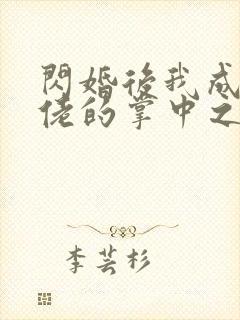 閃婚後我成
佬的掌中之
李芸杉